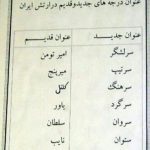 عنوان درجه های جدیدوقدیم درارتش ایران
عنوان جدید عنوان قدیم
سرلشگر امیر تومن
سرتیپ میرپنج
سرهنگ کلنل
سرگرد یاور
سروان سلطان
ستوان نایب